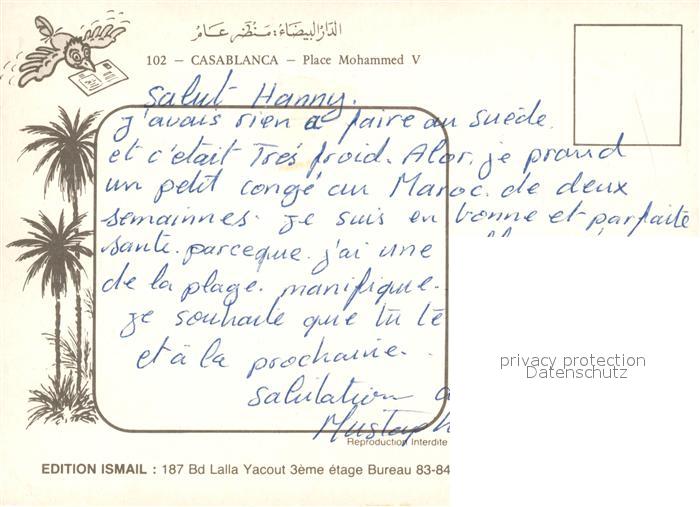 الدار البيضاء: منظر عام
102 – CASABLANCA – Place Mohammed V
Salut Hanny.
J'avais rien a faire au suéde
et c'était Trés froid. Alor. je prand
un petit congé au Maroc. de deux
semainnes. Je suis en bonne et parfaite
santé. parceque. j'ai une
de la plage. manifique.
Je souhaite que tu te
et à la prochaine.
Salutation
Mustaph
Reproduction Interdite
EDITION ISMAIL : 187 Bd Lalla Yacout 3ème étage Bureau 83-84
privacy protection
Datenschutz